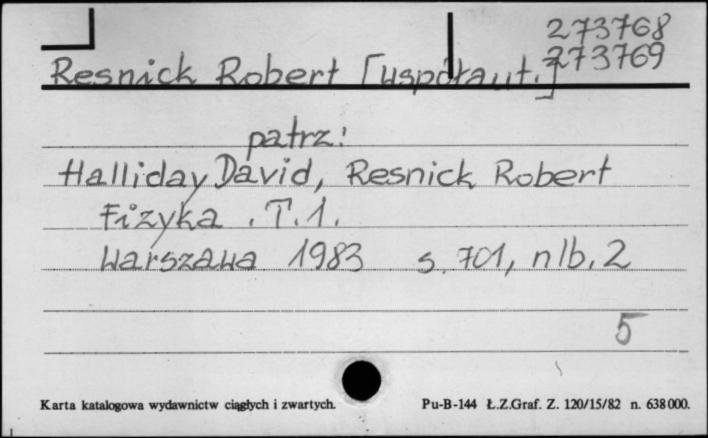 273768
273769
Resnick Robert [współaut.]
patrz:
Halliday David, Resnick Robert
Fizyka. T.1.
Warszawa 1983 s. 701, nlb. 2
5
Karta katalogowa wydawnictw ciągłych i zwartych. Pu-B-144 Ł.Z.Graf. Z. 120/15/82 n. 638000.